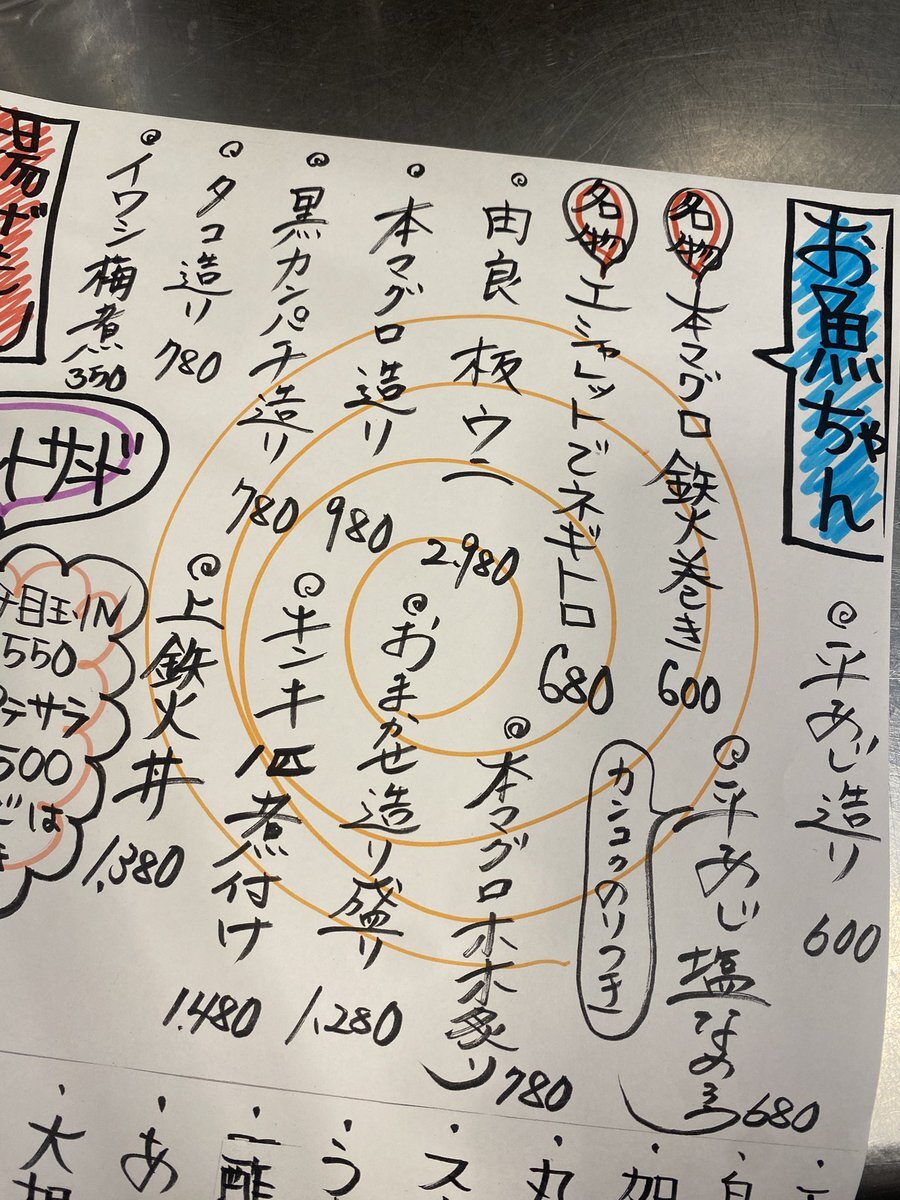 お魚ちゃん
平あじ造り 600
名物 本マグロ鉄火巻き 600
平あじ塩なめろう 680
カンコのりつき
名物 エシャレットでネギトロ 680
由良 板ウニ 2,980
本マグロホホ炙り 780
本マグロ造り 980
おまかせ造り盛り 1,280
黒カンパチ造り 780
キンキ1匹煮付け 1,480
タコ造り 780
上鉄火丼 1,380
イワシ梅煮 350
揚げもん
トサンド
目玉IN
550
テサラ
500
ごは
加
丸
ス
う
二酢
あ
大